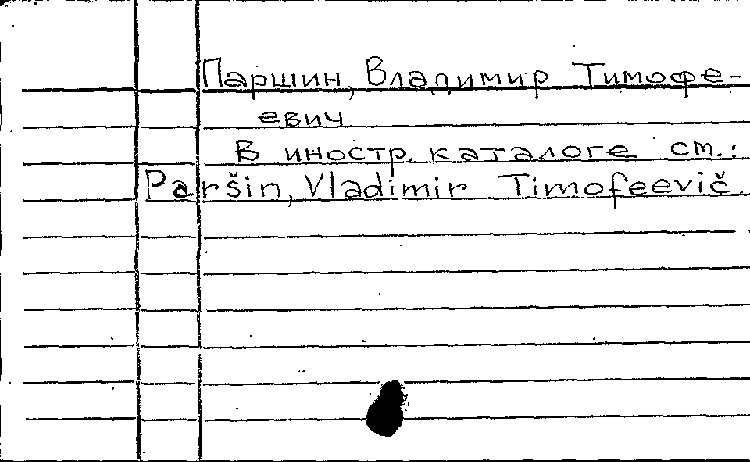 Паршин, Владимир Тимофе-
евич
В иностр. каталоге см.:
Paršin, Vladimir Timofeevič.